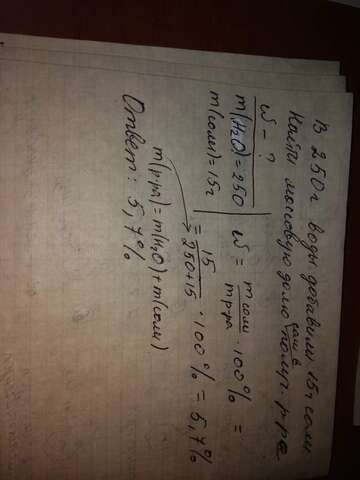 В 250г воды добавили 15г соли
Найти массовую долю соли в получ. р-ре
W - ?
m(H₂O)=250
m(соли)=15г
W = m соли / m р-ра · 100% =
= 15 / 250+15 · 100% = 5,7%
m(р-ра)=m(H₂O)+m(соли)
Ответ: 5,7%